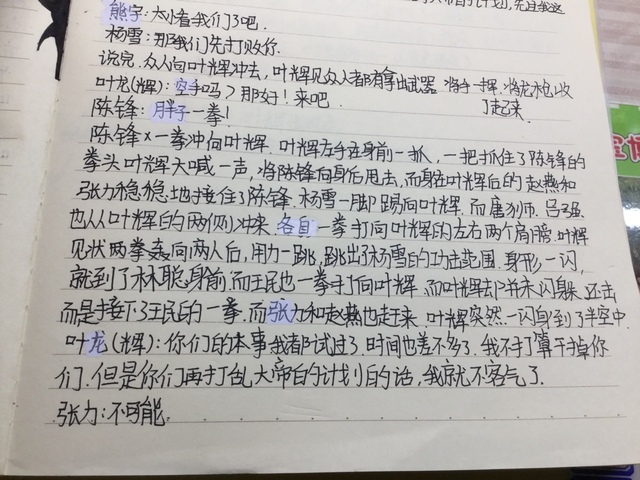 帝的计划,先过我这
熊宇:太小看我们了吧.
杨雪:那我们先打败你.
说完.众人向叶辉冲去,叶辉见众人都没有拿出武器 将手一挥.将龙枪收了起来
叶龙(辉):空手吗?那好!来吧
陈锋:胖子一拳!
陈锋×一拳冲向叶辉.叶辉左手在身前一抓,一把抓住了陈锋的
拳头叶辉大喊一声,将陈锋向身后甩去,而身在叶辉后的赵燕和
张力稳稳地接住了陈锋.杨雪一脚踢向叶辉.而唐狮.吕子强
也从叶辉的两侧冲来.各自一拳打向叶辉的左右两个肩膀.叶辉
见状两拳轰向两人后,用力一跳,跳出了杨雪的功击范围.身形一闪,
就到了林聪身前而王民也一拳打向叶辉.而叶辉却并未闪躲.还击
而是接下了王民的一拳.而张力和赵燕也赶来.叶辉突然一闪身到了半空中.
叶龙(辉):你们的本事我都试过了.时间也差不多了.我不打算干掉你
们.但是你们再打乱大帝的计划的话,我就不客气了.
张力:不可能.